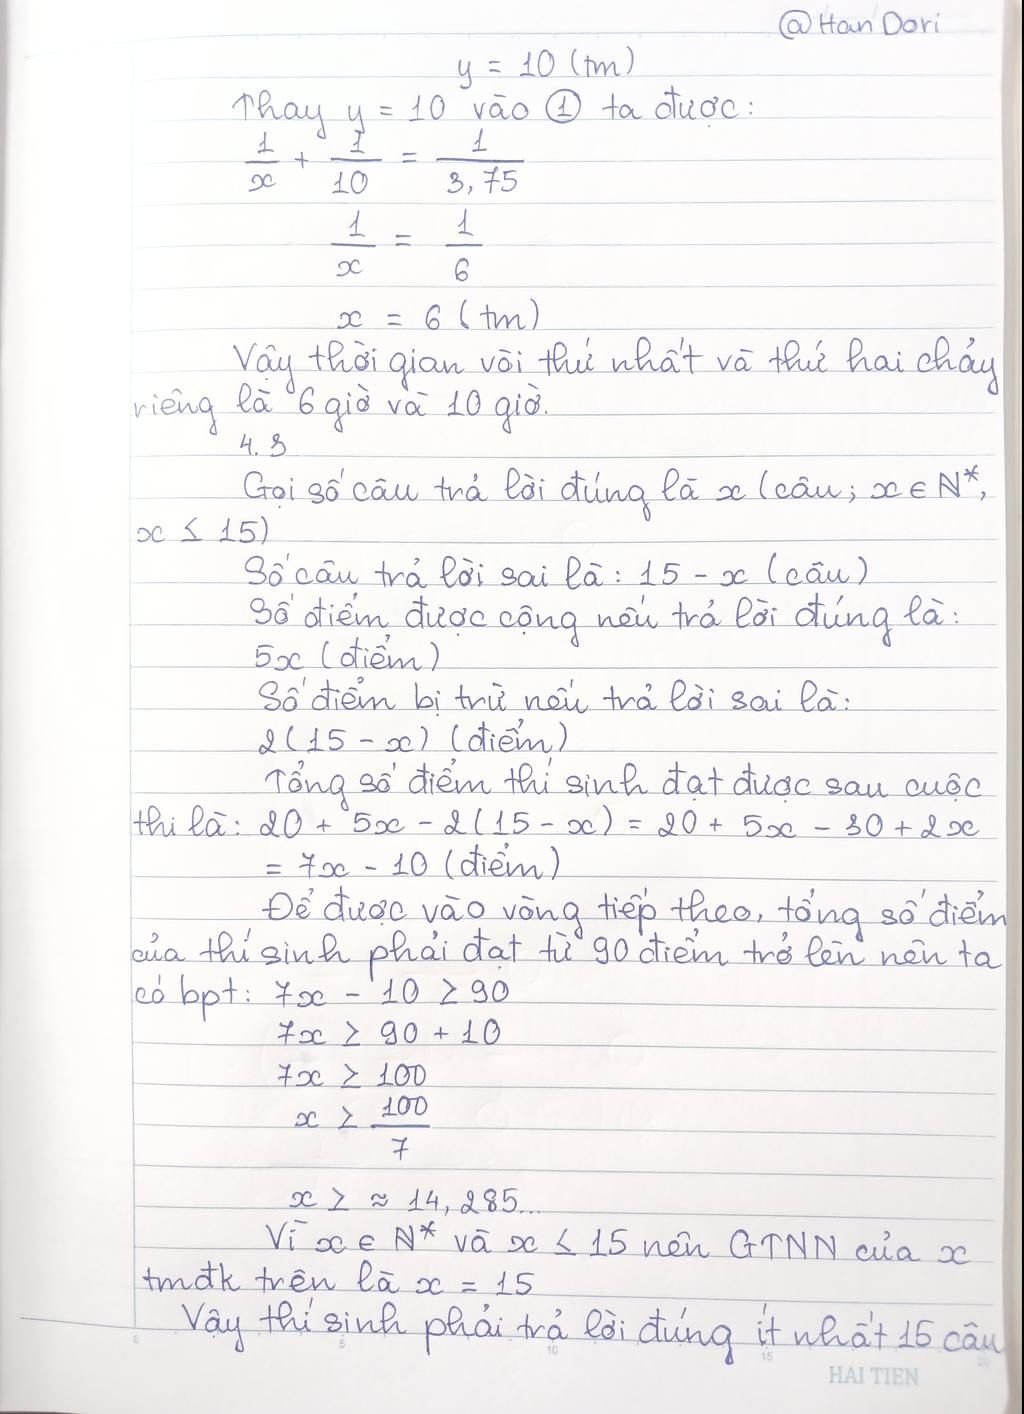 @Han Dori
y = 10 (tm)
Thay y = 10 vào ① ta được:
1/x + 1/10 = 1/3,75
1/x = 1/6
x = 6 (tm)
Vậy thời gian vòi thứ nhất và thứ hai chảy
riêng là 6 giờ và 10 giờ.
4.3
Gọi số câu trả lời đúng là x (câu; x ∈ N*,
x ≤ 15)
Số câu trả lời sai là: 15 - x (câu)
Số điểm được cộng nếu trả lời đúng là:
5x (điểm)
Số điểm bị trừ nếu trả lời sai là:
2(15 - x) (điểm)
Tổng số điểm thí sinh đạt được sau cuộc
thi là: 20 + 5x - 2(15 - x) = 20 + 5x - 30 + 2x
= 7x - 10 (điểm)
Để được vào vòng tiếp theo, tổng số điểm
của thí sinh phải đạt từ 90 điểm trở lên nên ta
có bpt: 7x - 10 ≥ 90
7x ≥ 90 + 10
7x ≥ 100
x ≥ 100/7
x ≥ ≈ 14,285...
Vì x ∈ N* và x ≤ 15 nên GTNN của x
tmđk trên là x = 15
Vậy thí sinh phải trả lời đúng ít nhất 15 câu
0 5 10 15 20
HAI TIEN